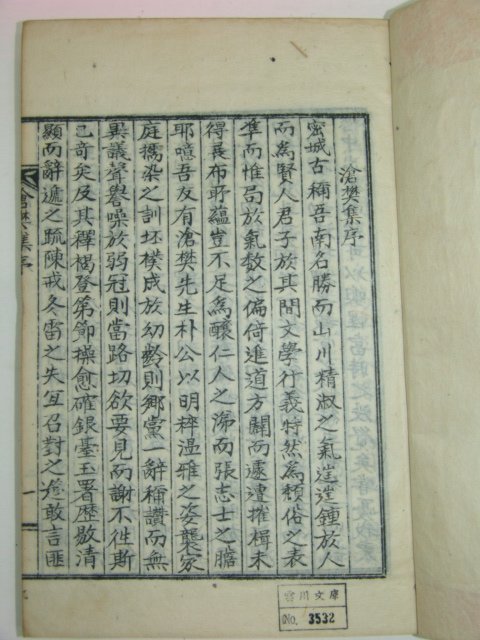 滄樊集序
密城古稱吾南名勝而山川精淑之氣蓬蓬鍾於人
而為賢人君子於其間文學行義特然為頹俗之表
準而惟局於氣數之偏倚進道方闢而遽遭摧楫未
得展布所蘊豈不足為釀仁人之涕而張志士之膽
耶噫吾友有滄樊先生朴公以明粹溫雅之姿襲家
庭擩染之訓坯樸成於幼齡則鄉黨一辭稱讚而無
異議聲譽噪於弱冠則當路切欲要見而謝不徃斯
已奇矣及其釋褐登第節操愈確銀臺玉署歷敭清
顯而辭遞之疏陳戒冬雷之失宜召對之筵敢言匪
滄樊集序
一
宮川文庫
No. 3532